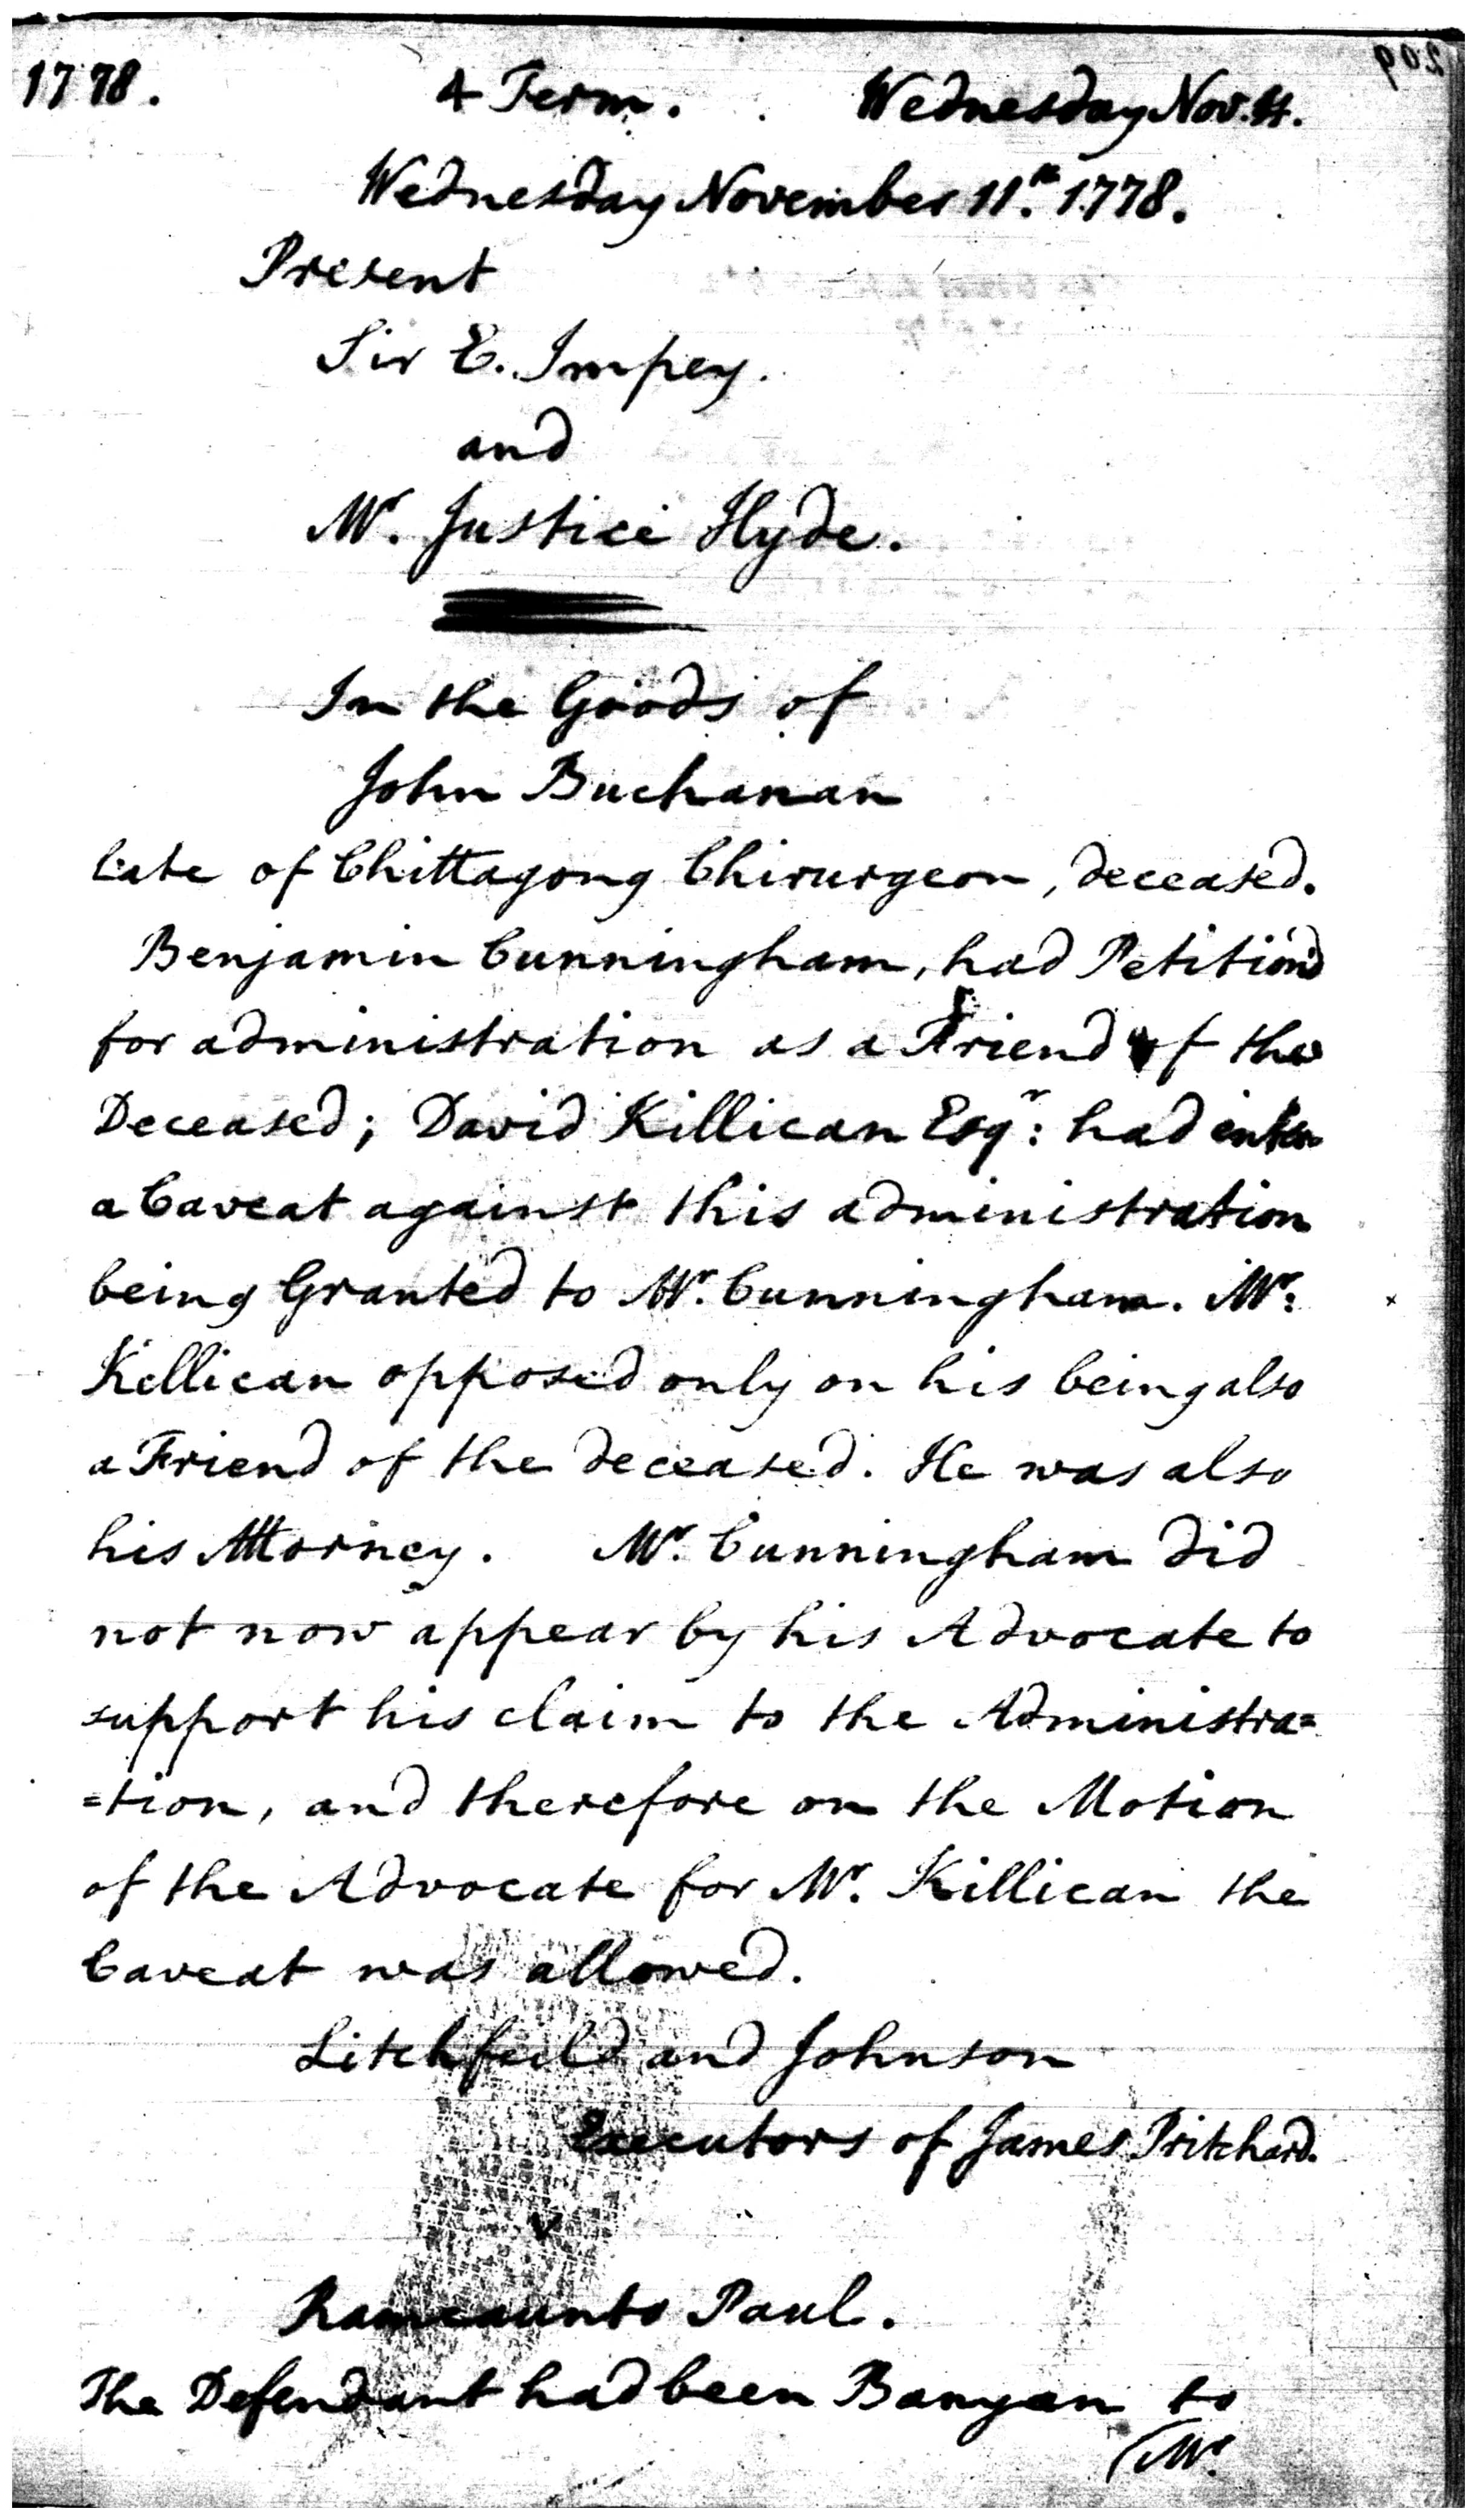 1778. 4 Term. Wednesday Nov. 11.
Wednesday November 11.th 1778.
Present
Sir E. Impey.
and
Mr. Justice Hyde.
In the Goods of
John Buchanan
late of Chittagong Chirurgeon, deceased.
Benjamin Cunningham, had Petition'd
for administration as a Friend of the
Deceased; David Killican Esqr: had
a Caveat against this administration
being Granted to Mr. Cunningham. Mr:
Killican opposed only on his being also
a Friend of the deceased. He was also
his Attorney. Mr. Cunningham did
not now appear by his Advocate to
support his claim to the Administra=
=tion, and therefore on the Motion
of the Advocate for Mr. Killican the
Caveat was allowed.
Litchfeild and Johnson
Executors of James Pritchard.
v
Ramcaunto Paul.
The Defendant had been Banyan to
(Mr.